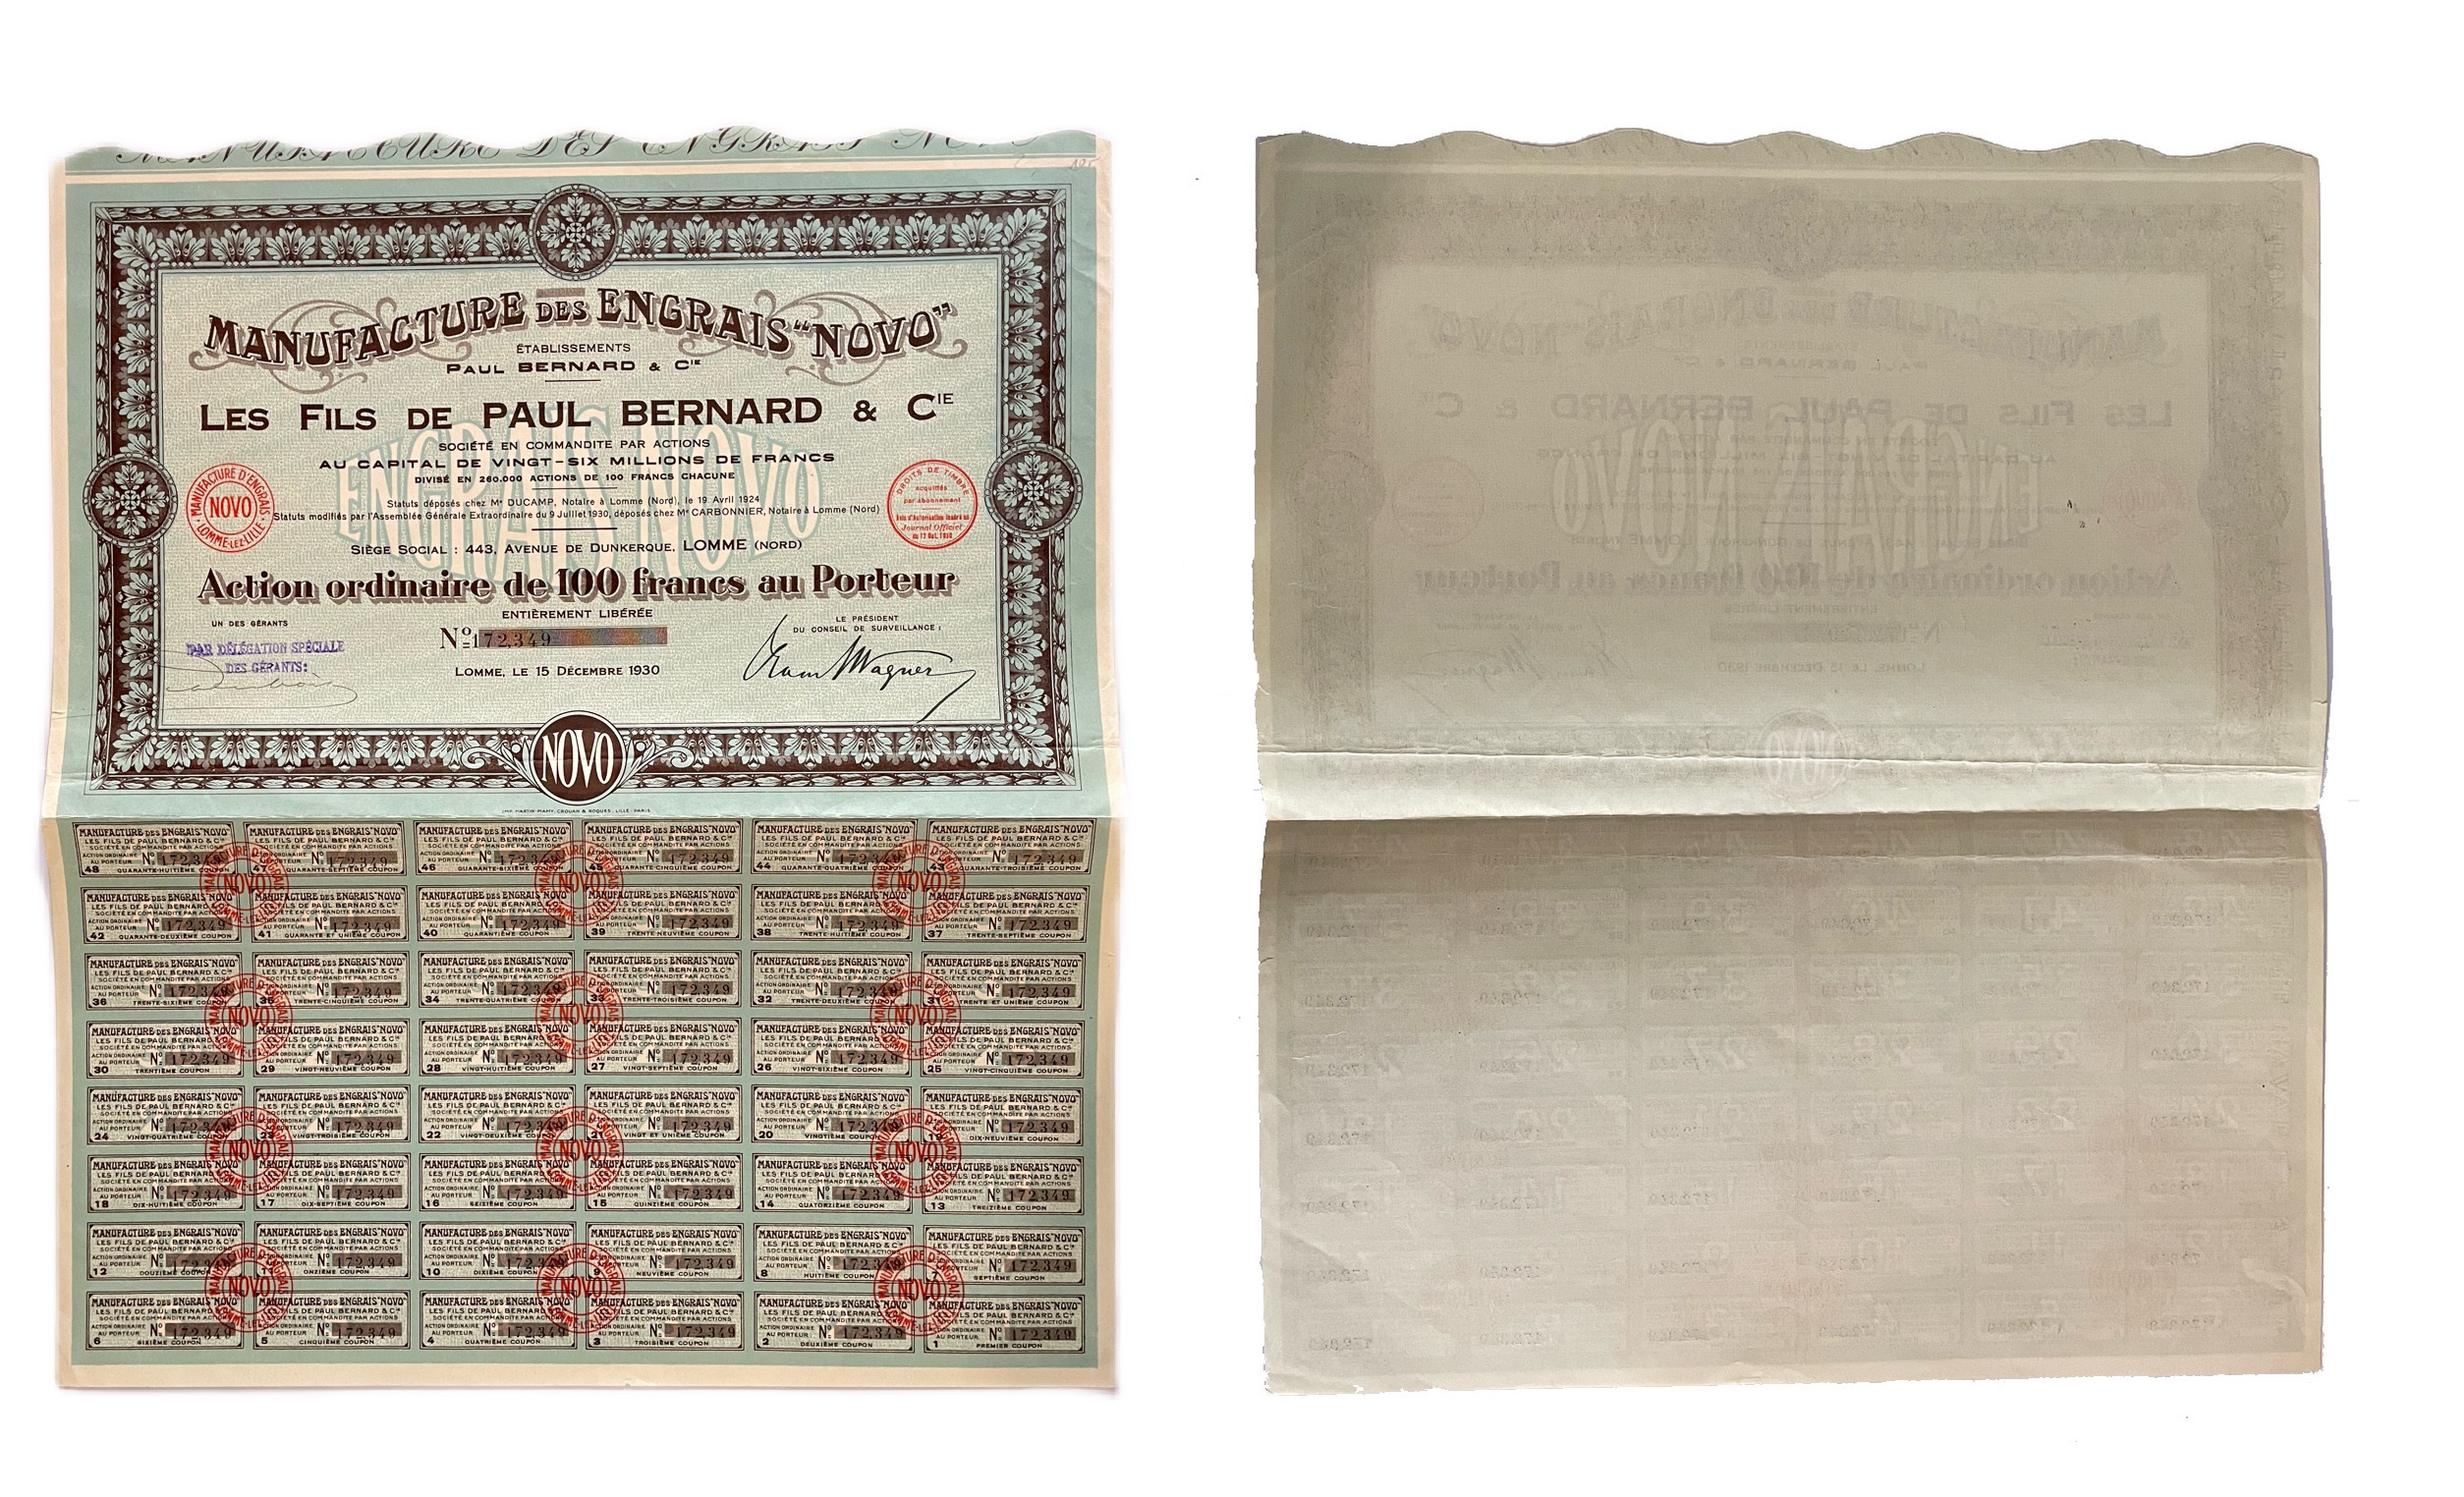 MANUFACTURE DES ENGRAIS NOVO
MANUFACTURE DES ENGRAIS "NOVO"
ÉTABLISSEMENTS
PAUL BERNARD & CIE
LES FILS DE PAUL BERNARD & CIE
SOCIÉTÉ EN COMMANDITE PAR ACTIONS
AU CAPITAL DE VINGT-SIX MILLIONS DE FRANCS
DIVISÉ EN 260.000 ACTIONS DE 100 FRANCS CHACUNE
ENGRAIS NOVO
Statuts déposés chez Me DUCAMP, Notaire à Lomme (Nord), le 19 Avril 1924
Statuts modifiés par l'Assemblée Générale Extraordinaire du 9 Juillet 1930, déposés chez Me CARBONNIER, Notaire à Lomme (Nord)
MANUFACTURE D'ENGRAIS
NOVO
LOMME-LEZ-LILLE
DROITS DE TIMBRE
acquittés
par abonnement
Avis d'Autorisation inséré au
Journal Officiel
du 12 Oct. 1930
SIÈGE SOCIAL : 443, AVENUE DE DUNKERQUE, LOMME (NORD)
Action ordinaire de 100 francs au Porteur
ENTIÈREMENT LIBÉRÉE
UN DES GÉRANTS
PAR DÉLÉGATION SPÉCIALE
DES GÉRANTS:
No 172,349
LOMME, LE 15 DÉCEMBRE 1930
LE PRÉSIDENT
DU CONSEIL DE SURVEILLANCE :
NOVO
IMP. MARTIN-MAMY, CROUAN & ROQUES, LILLE-PARIS
MANUFACTURE DES ENGRAIS "NOVO"
LES FILS DE PAUL BERNARD & Cie
SOCIÉTÉ EN COMMANDITE PAR ACTIONS
ACTION ORDINAIRE
AU PORTEUR No 172,349
48 QUARANTE-HUITIÈME COUPON
47 QUARANTE-SEPTIÈME COUPON
46 QUARANTE-SIXIÈME COUPON
45 QUARANTE-CINQUIÈME COUPON
44 QUARANTE-QUATRIÈME COUPON
43 QUARANTE-TROISIÈME COUPON
42 QUARANTE-DEUXIÈME COUPON
41 QUARANTE ET UNIÈME COUPON
40 QUARANTIÈME COUPON
39 TRENTE-NEUVIÈME COUPON
38 TRENTE-HUITIÈME COUPON
37 TRENTE-SEPTIÈME COUPON
36 TRENTE-SIXIÈME COUPON
35 TRENTE-CINQUIÈME COUPON
34 TRENTE-QUATRIÈME COUPON
33 TRENTE-TROISIÈME COUPON
32 TRENTE-DEUXIÈME COUPON
31 TRENTE ET UNIÈME COUPON
30 TRENTIÈME COUPON
29 VINGT-NEUVIÈME COUPON
28 VINGT-HUITIÈME COUPON
27 VINGT-SEPTIÈME COUPON
26 VINGT-SIXIÈME COUPON
25 VINGT-CINQUIÈME COUPON
24 VINGT-QUATRIÈME COUPON
23 VINGT-TROISIÈME COUPON
22 VINGT-DEUXIÈME COUPON
21 VINGT ET UNIÈME COUPON
20 VINGTIÈME COUPON
19 DIX-NEUVIÈME COUPON
18 DIX-HUITIÈME COUPON
17 DIX-SEPTIÈME COUPON
16 SEIZIÈME COUPON
15 QUINZIÈME COUPON
14 QUATORZIÈME COUPON
13 TREIZIÈME COUPON
12 DOUZIÈME COUPON
11 ONZIÈME COUPON
10 DIXIÈME COUPON
9 NEUVIÈME COUPON
8 HUITIÈME COUPON
7 SEPTIÈME COUPON
6 SIXIÈME COUPON
5 CINQUIÈME COUPON
4 QUATRIÈME COUPON
3 TROISIÈME COUPON
2 DEUXIÈME COUPON
1 PREMIER COUPON